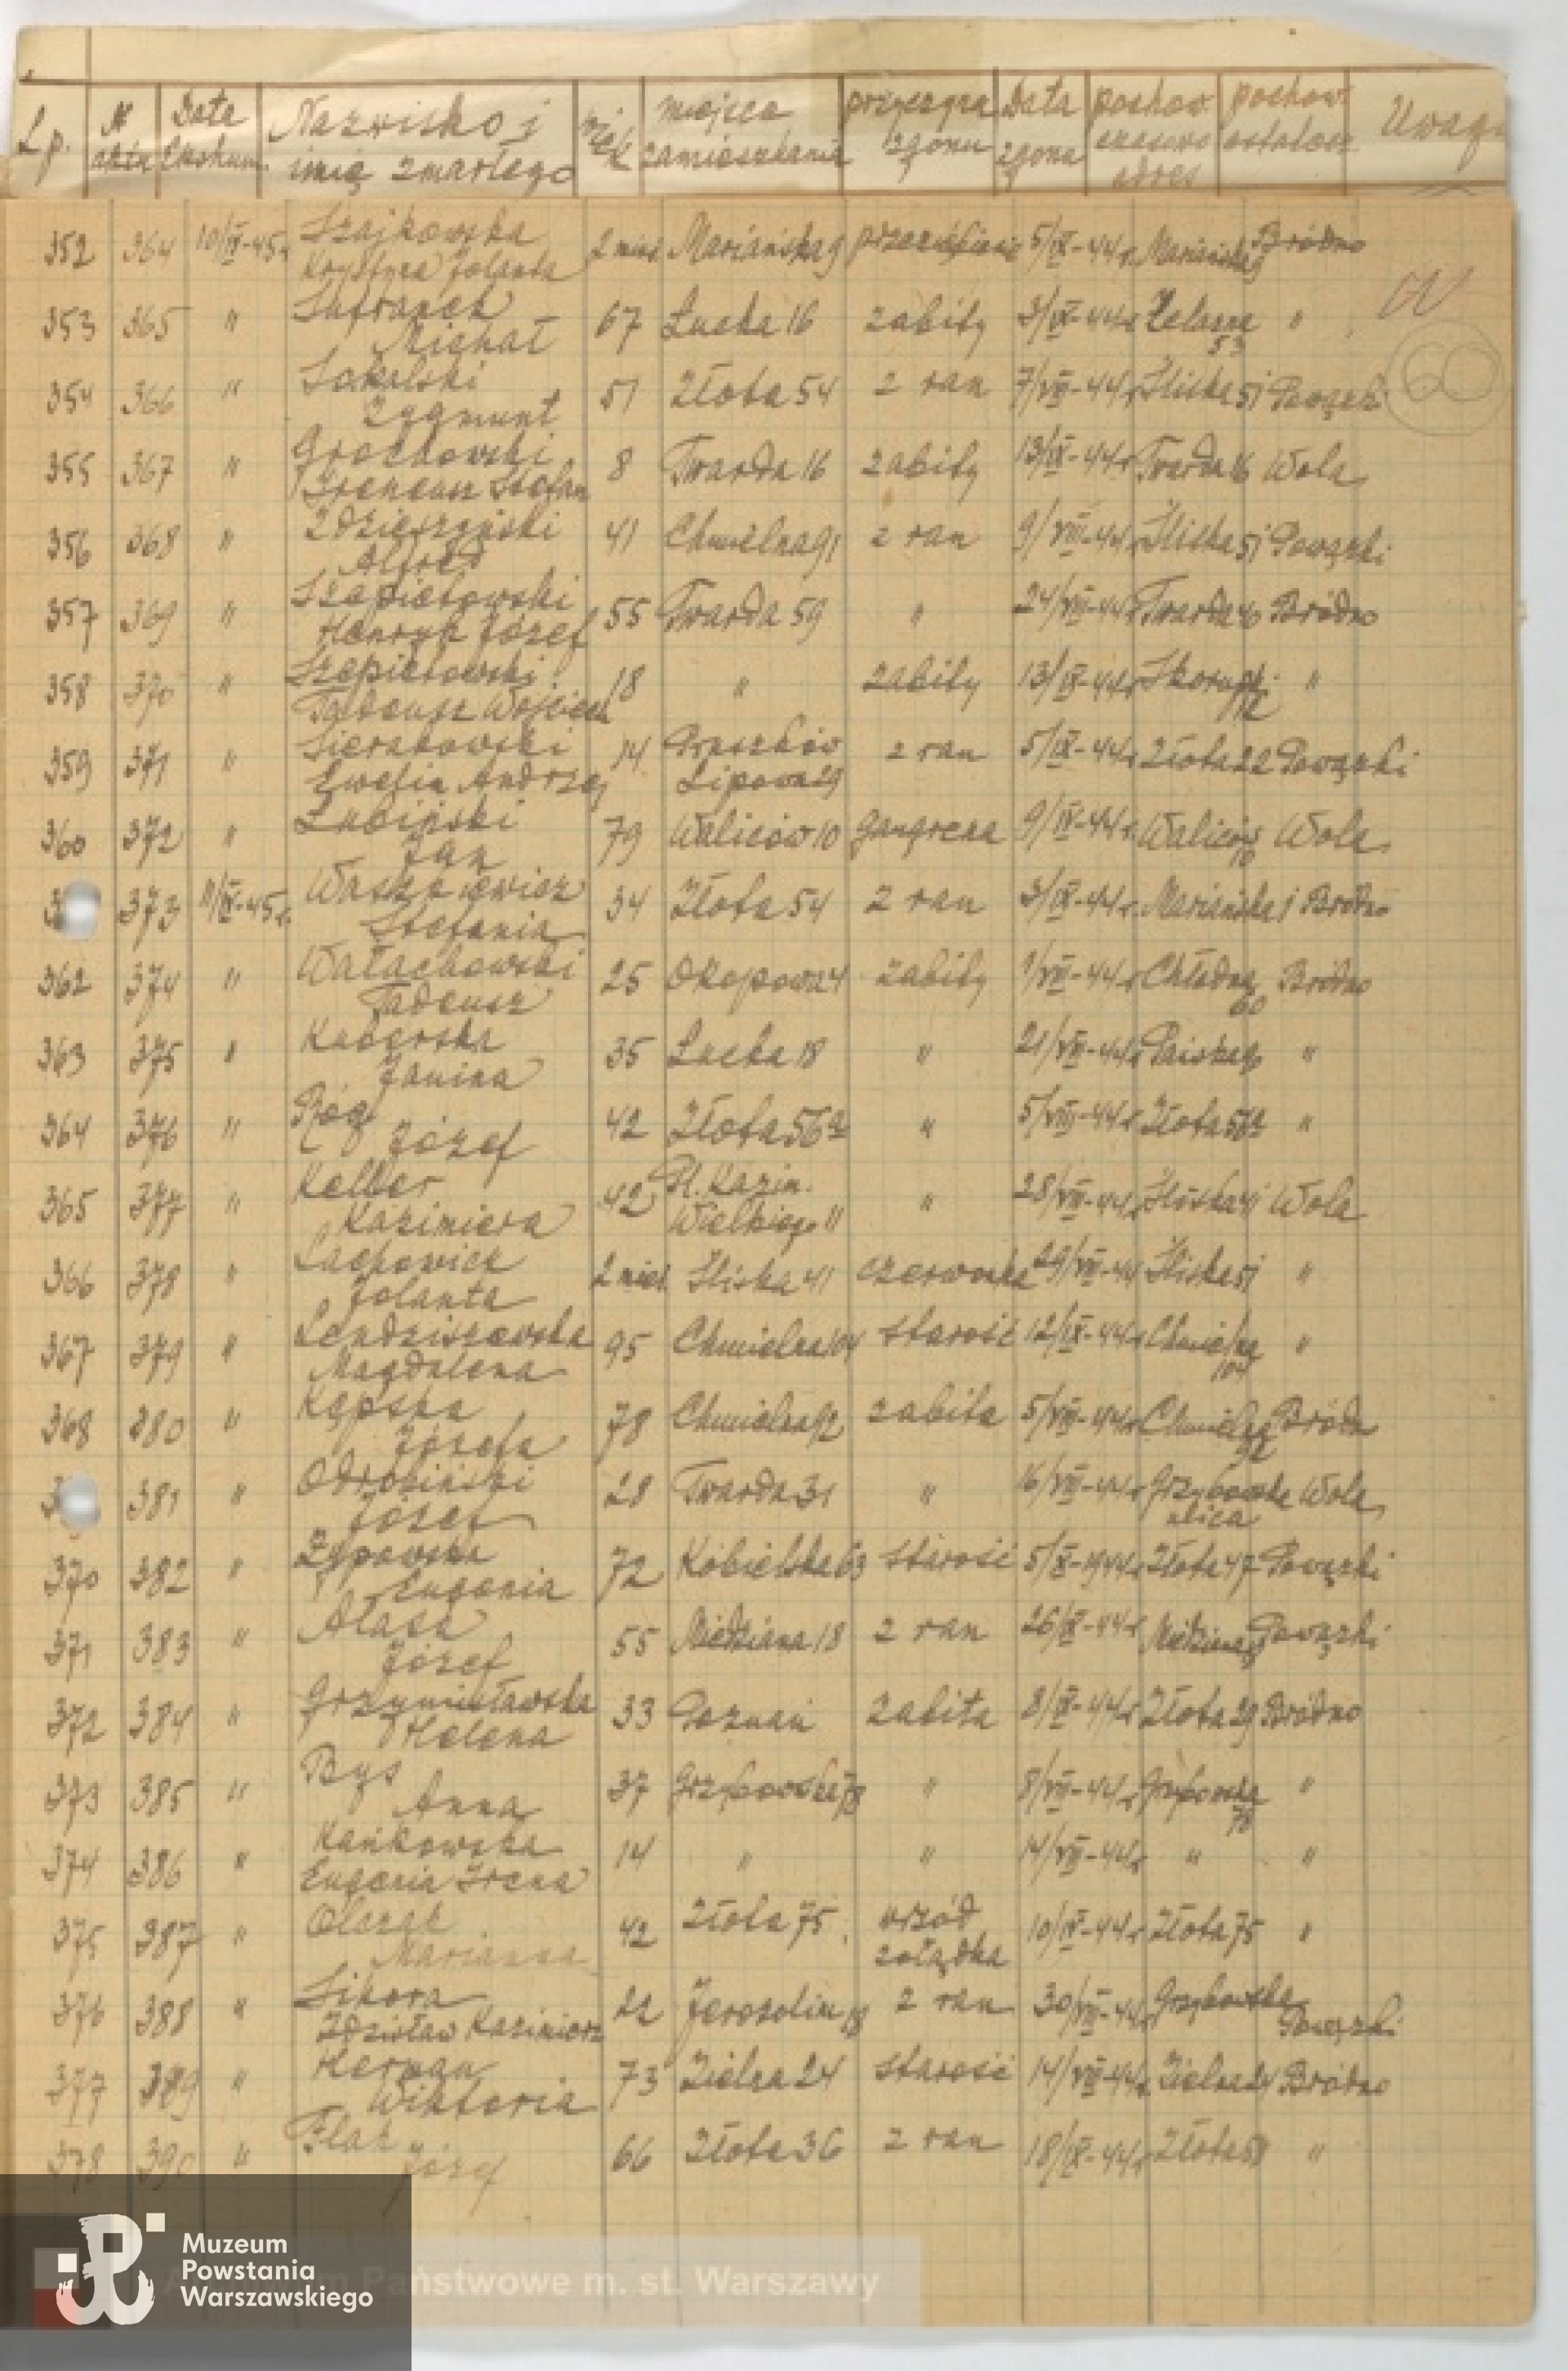 Lp. N aktu Data Ekshum. Nazwisko i imię zmarłego wiek miejsce zamieszkania przyczyna zgonu Data zgonu pochow. czasowo adres pochow. ostatecz. Uwagi
352 364 10/IV-45r. Szajkowska Krystyna Jolanta 2 mies Mariańska 9 5/IX-44r. Mariańska 9 Bródno
353 365 " Michał 67 Łucka 16 zabity 3/IX-44r. Żelazna 53 "
60
354 366 " Sokolski Zygmunt 51 Złota 54 z ran 7/VIII-44r. Śliska 51 Powązki
355 367 " Grochowski Ireneusz Stefan 8 Twarda 16 zabity 13/IX-44r. Twarda 16 Wola
356 368 " Alfred 41 Chmielna 91 z ran 9/VIII-44r. Śliska 51 Powązki
357 369 " Szepietowski Henryk Józef 55 Twarda 59 " 24/VIII-44r. Twarda 40 Bródno
358 370 " Szepietowski Tadeusz Wojciech 18 " zabity 13/IX-44r. "
359 371 " Sierakowski Andrzej 14 Pruszków Lipowa 29 z ran 5/IX-44r. Złota 22 Powązki
360 372 " Łubiński Jan 79 Waliców 10 gangrena 9/IX-44r. Waliców 10 Wola
373 11/IV-45r. Waszkiewicz Stefania 34 Złota 54 z ran 3/IX-44r. Mariańska 1 Bródno
362 374 " Wałachowski Tadeusz 25 Okopowa 4 zabity 1/VIII-44r. Chłodna 60 Bródno
363 375 " Kuberska Janina 35 Łucka 18 " 21/VIII-44r. "
364 376 " Róg Józef 42 Złota 56a " 5/VIII-44r. Złota 56a "
365 377 " Keller Kazimiera 42 Pl. Kazim. Wielkiego 11 " 28/VIII-44r. Śliska 41 Wola
366 378 " Lachowicz Jolanta 2 mies. Śliska 41 czerwonka 29/VIII-44 Śliska 51 "
367 379 " Lendziszewska Magdalena 95 Chmielna 104 starość 12/IX-44r. Chmielna 104 "
368 380 " Kępska Józefa 78 Chmielna 92 zabita 5/VIII-44r. Chmielna 92 Bródn
381 " Odrobiński Józef 28 Twarda 31 " 16/VIII-44r. Grzybowska ulica Wola
370 382 " Eugenia 72 Kobielska 63 starość 5/X-944r. Złota 47 Powązki
371 383 " Ałasa Józef 55 Miedziana 18 z ran 26/IX-44r. Miedziana Powązki
372 384 " Grzymisławska Helena 33 Poznań zabita 8/IX-44r. Złota 29 Bródno
373 385 " Bys Anna 37 Grzybowska 78 " 8/VIII-44r. Grzybowska 78 "
374 386 " Kańkowska Eugenia Irena 14 " " 14/VIII-44r. " "
375 387 " Olczak Marianna 42 Złota 75 wrzód żołądka 10/IX-44r. Złota 75 "
376 388 " Sikora Zdzisław Kazimierz 22 Jerozolim. 18 z ran 30/VIII-44r. Grzybowska Powązki
377 389 " Herman Wiktoria 73 Zielna 24 starość 14/VIII-44r. Zielna 24 Bródno
378 390 " Flak Józef 66 Złota 36 z ran 18/IX-44r. Złota 58 "
Muzeum
Powstania
Warszawskiego
Państwowe m. st. Warszawy